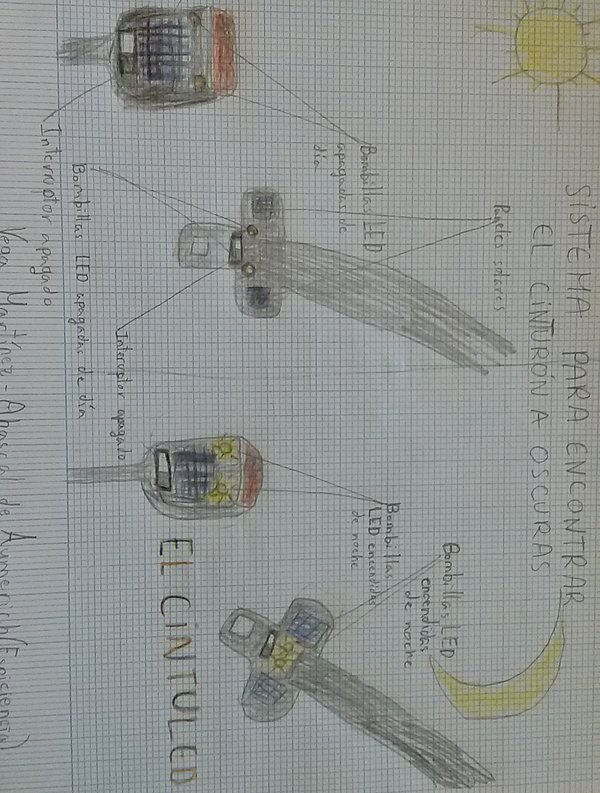 SISTEMA PARA ENCONTRAR
EL CINTURÓN A OSCURAS
Paneles solares
Bombillas LED
apagadas de
día
Bombillas LED
encendidas
de noche
Bombillas
LED encendidas
de noche
Interruptor apagado
Bombillas LED apagadas de día
Interruptor apagado
EL CINTULED
Vega Martínez-Abascal de Aymerich (Espiciencia)